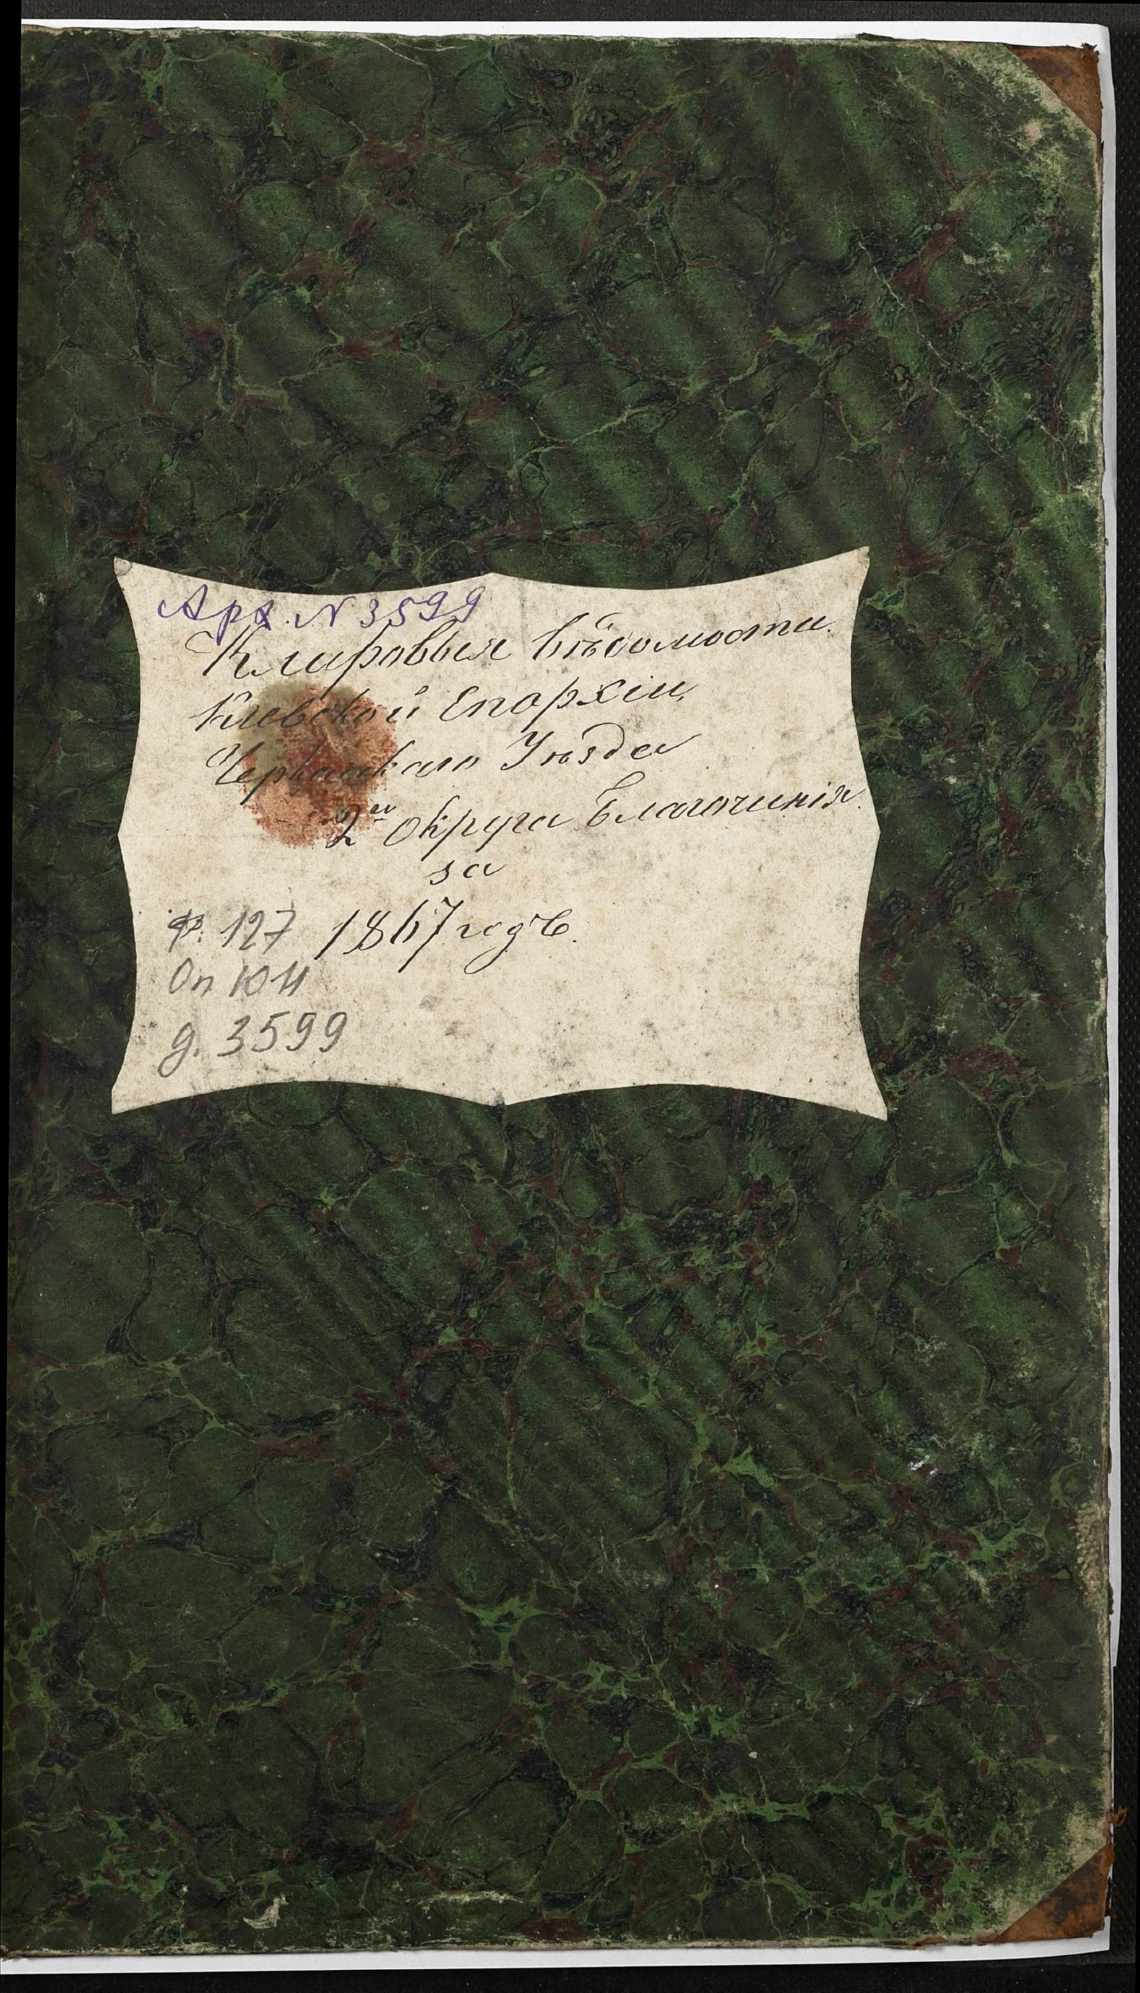 Арх. N 3599
Клировыя вѣдомости
Кіевской Епархіи,
Черкаскаго Уѣзда
2го Округа Благочинія.
за
1867 годъ.
ф. 127
Оп 1011
д. 3599